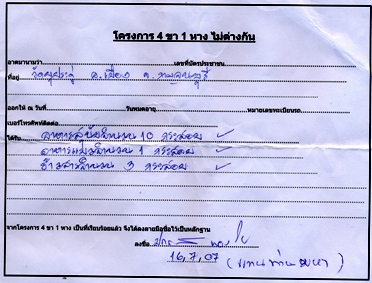 โครงการ 4 ขา 1 ทาง ไม่ต่างกัน
อาตมานามว่า เลขที่บัตรประชาชน
ที่อยู่ วัด อ.เมือง จ.กาญจนบุรี
ออกให้ ณ วันที่ วันหมดอายุ หมายเลขทะเบียนรถ
เบอร์โทรศัพท์ติดต่อ
ได้รับ อาหารสุนัขจำนวน 10 กระสอบ ✓
อาหารแมวจำนวน 1 กระสอบ ✓
ข้าวสารจำนวน 3 กระสอบ ✓
จากโครงการ 4 ขา 1 ทาง เป็นที่เรียบร้อยแล้ว จึงได้ลงลายมือชื่อไว้เป็นหลักฐาน
ลงชื่อ
16,7,07